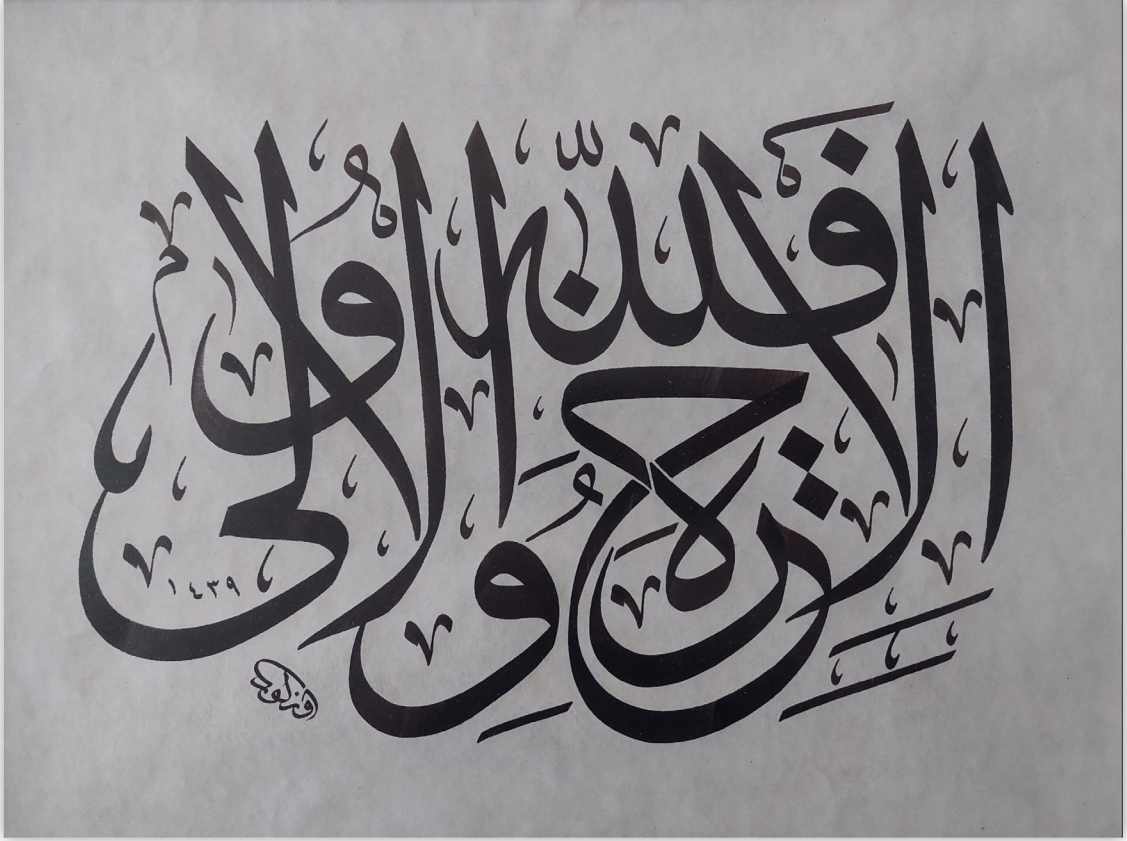 فَلِلّٰهِ الْاٰخِرَةُ وَالْاُولٰى
١٤٣٩